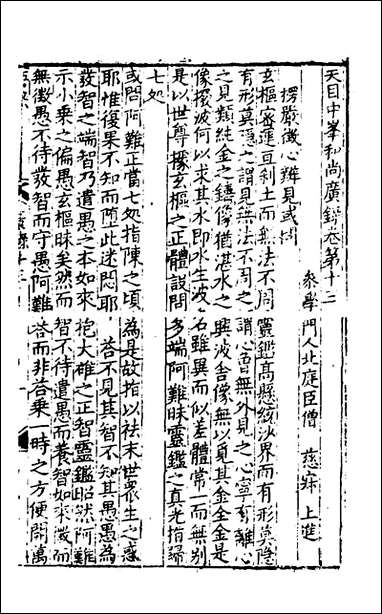 天目中峯和尚廣錄卷第十三
參學門人北庭臣僧 慈寂 上進
楞嚴徵心辯見或問
玄樞密運亘刹土而無法不周靈鑑高懸絃沙界而有形莫隱
有形莫隱之謂見無法不周之謂心曾無外見之心寧有離心
之見類純金之鑄像猶湛水之興波舍像無以見其金全金是
像撥波何以求其水即水生波名雖異而似差體常一而無別
是以世尊據玄樞之正體設問多端阿難昧靈鑑之直光指歸
七処
或問阿難正當七処指陳之頃為是故指以袪末世衆生之惑
耶惟復果不知而墮此迷悶耶 荅不見其智不知其愚愚為
發智之端智乃遣愚之本如來抱大確之正智靈鑑昭然阿難
示小乗之偏愚玄樞昧矣然而智不待遣愚而養智如來發而
無徵愚不待發智而守愚阿難荅而非荅乗一時之方便開萬